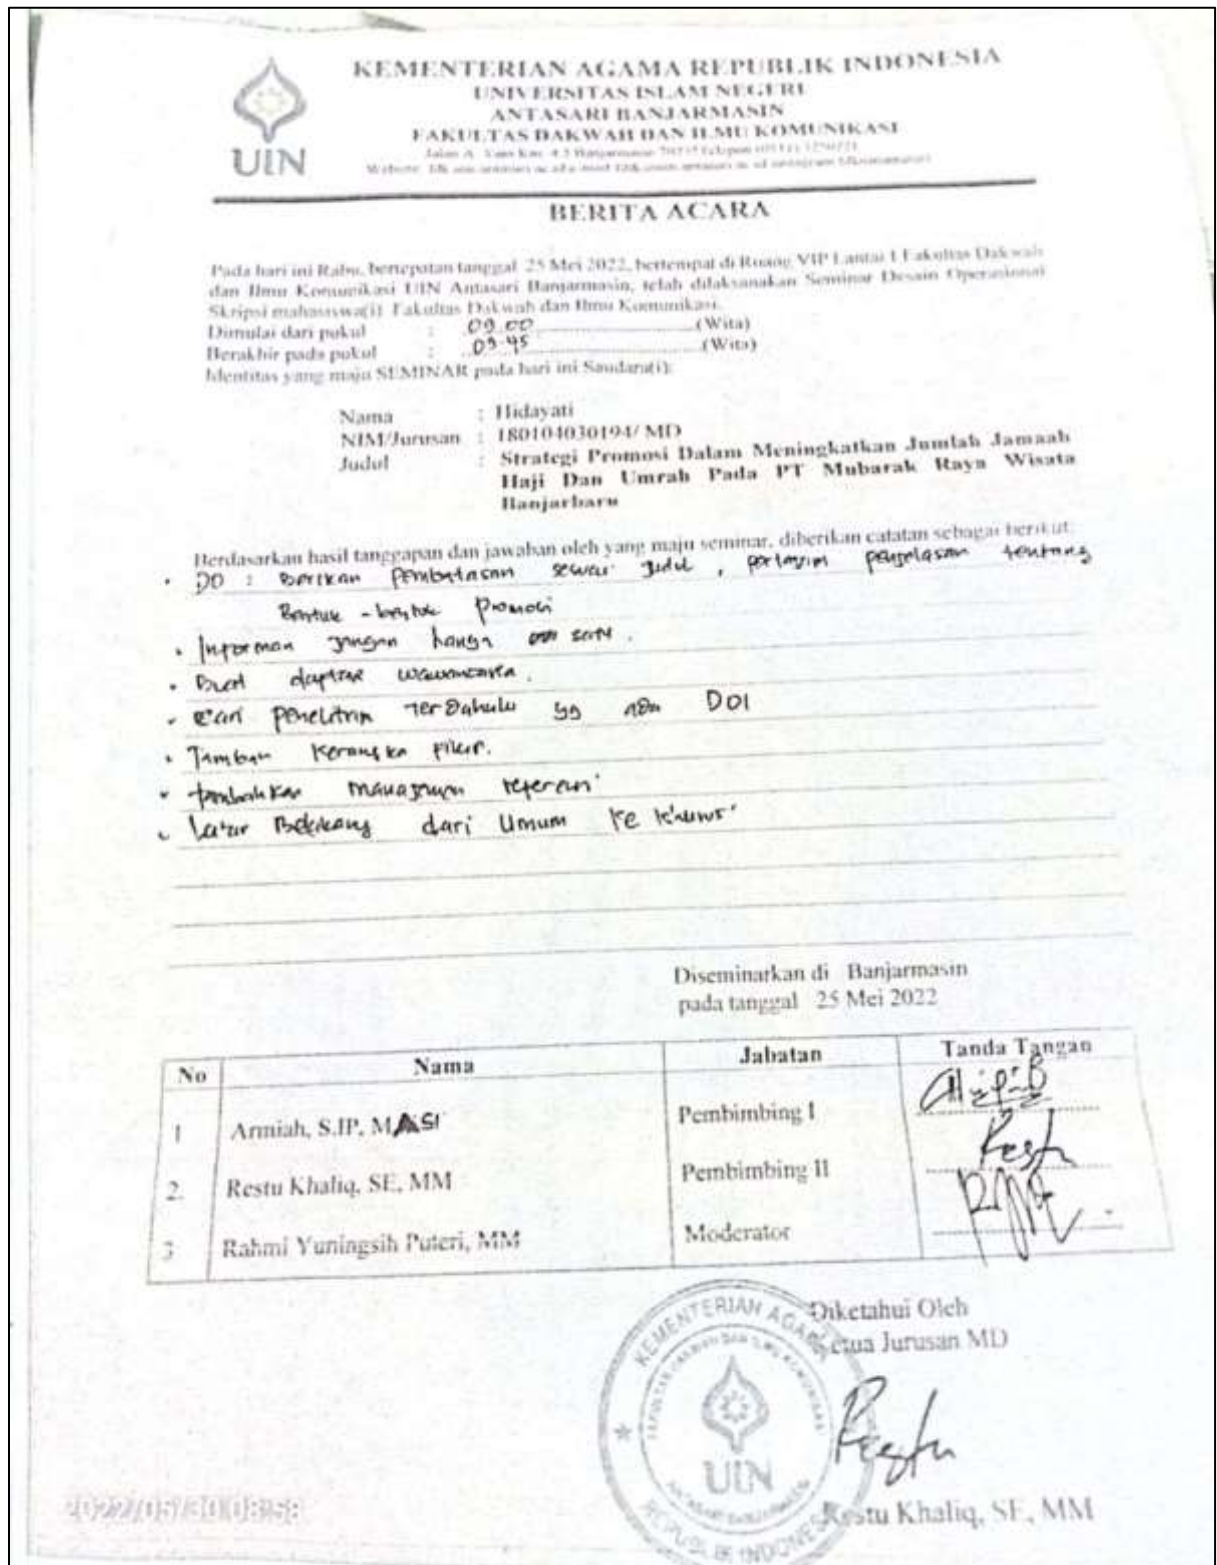 KEMENTERIAN AGAMA REPUBLIK INDONESIA
UNIVERSITAS ISLAM NEGERI
ANTASARI BANJARMASIN
FAKULTAS DAKWAH DAN ILMU KOMUNIKASI
Jalan A. Yani Km. 4,5 Banjarmasin
UIN
BERITA ACARA
Pada hari ini Rabu, bertepatan tanggal 25 Mei 2022, bertempat di Ruang VIP Lantai I Fakultas Dakwah
dan Ilmu Komunikasi UIN Antasari Banjarmasin, telah dilaksanakan Seminar Desain Operasional
Skripsi mahasiswa(i) Fakultas Dakwah dan Ilmu Komunikasi.
Dimulai dari pukul : 09.00 (Wita)
Berakhir pada pukul : 09.45 (Wita)
Identitas yang maju SEMINAR pada hari ini Saudara(i):
Nama : Hidayati
NIM/Jurusan : 180104030194/ MD
Judul : Strategi Promosi Dalam Meningkatkan Jumlah Jamaah
Haji Dan Umrah Pada PT Mubarak Raya Wisata
Banjarbaru
Berdasarkan hasil tanggapan dan jawaban oleh yang maju seminar, diberikan catatan sebagai berikut:
• DO : Berikan pembatasan judul , penjelasan tentang
Bentuk - bentuk promosi
• Informan jangan hanya satu .
• Buat daftar wawancara .
• Cari penelitian terdahulu yg ada DOI
• Tambah kerangka pikir.
• tambahkan
• Latar Belakang dari Umum ke khusus
Diseminarkan di Banjarmasin
pada tanggal 25 Mei 2022
No Nama Jabatan Tanda Tangan
1 Armiah, S.IP, M.SI Pembimbing I
2. Restu Khaliq, SE, MM Pembimbing II
3 Rahmi Yuningsih Puteri, MM Moderator
Diketahui Oleh
Ketua Jurusan MD
KEMENTERIAN AGAMA
UIN
REPUBLIK INDONESIA
Restu Khaliq, SE, MM
2022/05/30 08:58